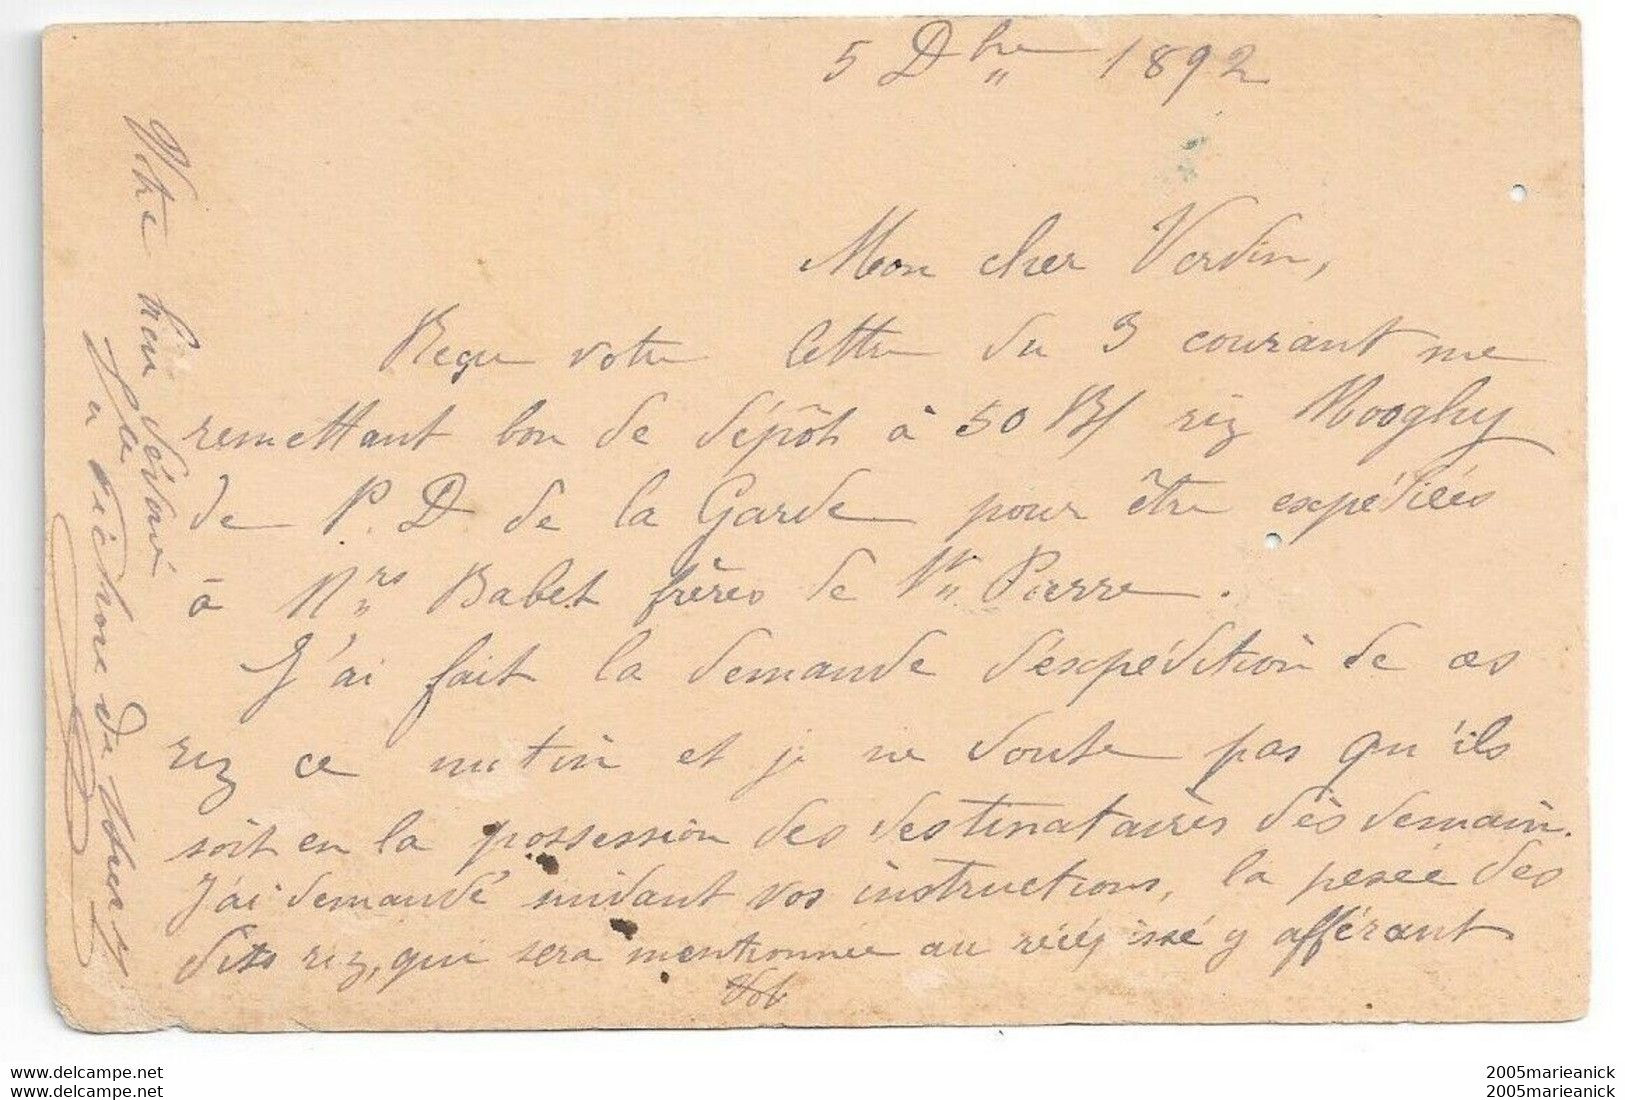 5 Dbre 1892
Mon cher Verdin,
Reçu votre lettre du 3 courant me
remettant bon de dépôt à 50 B/ riz Mooghy
de P. D. de la Garde pour être expédiées
à Mrs Babet frères de St Pierre.
J'ai fait la demande d'expédition de ces
riz ce matin et je ne doute pas qu'ils
soit en la possession des destinataires dès demain.
J'ai demandé suivant vos instructions, la pesée des
dits riz, qui sera mentionnée au récépissé y afférant
Votre bien dévoué
2005marieanick
2005marieanick
2005marieanick
2005marieanick